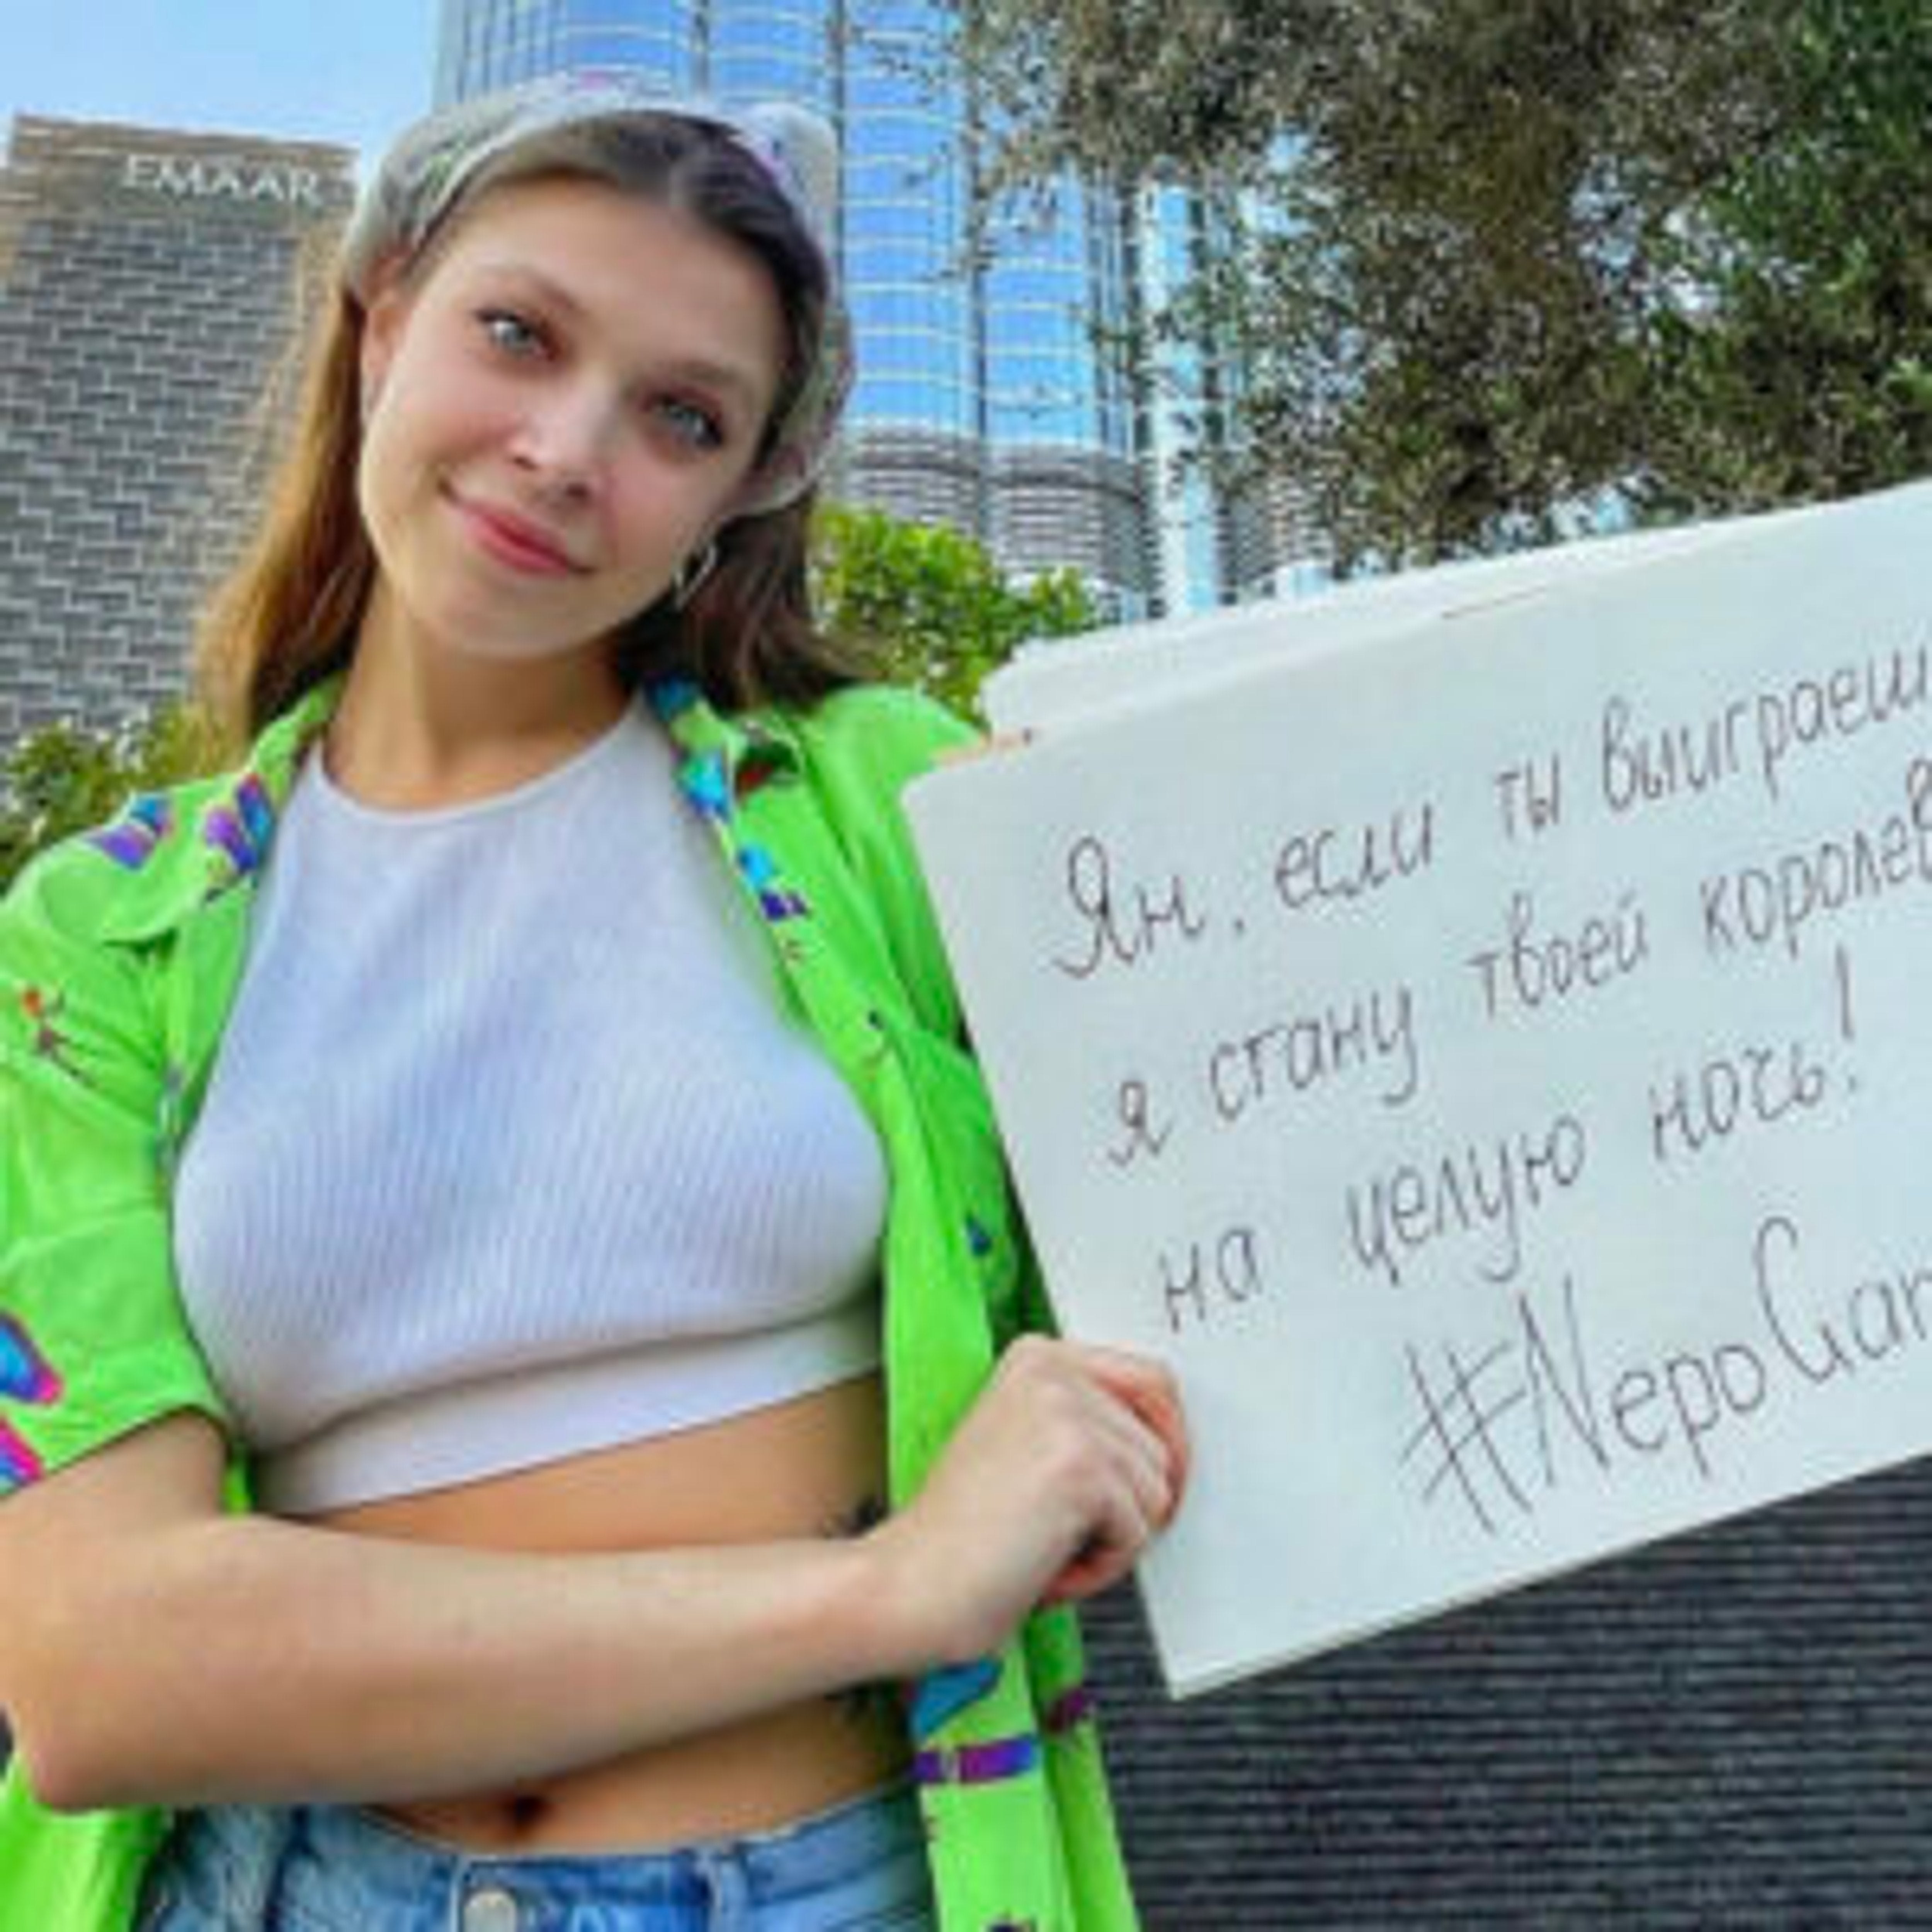 EMAAR
Ян, если ты выиграеш
я стану твоей королев
на целую ночь!
#NepoGam